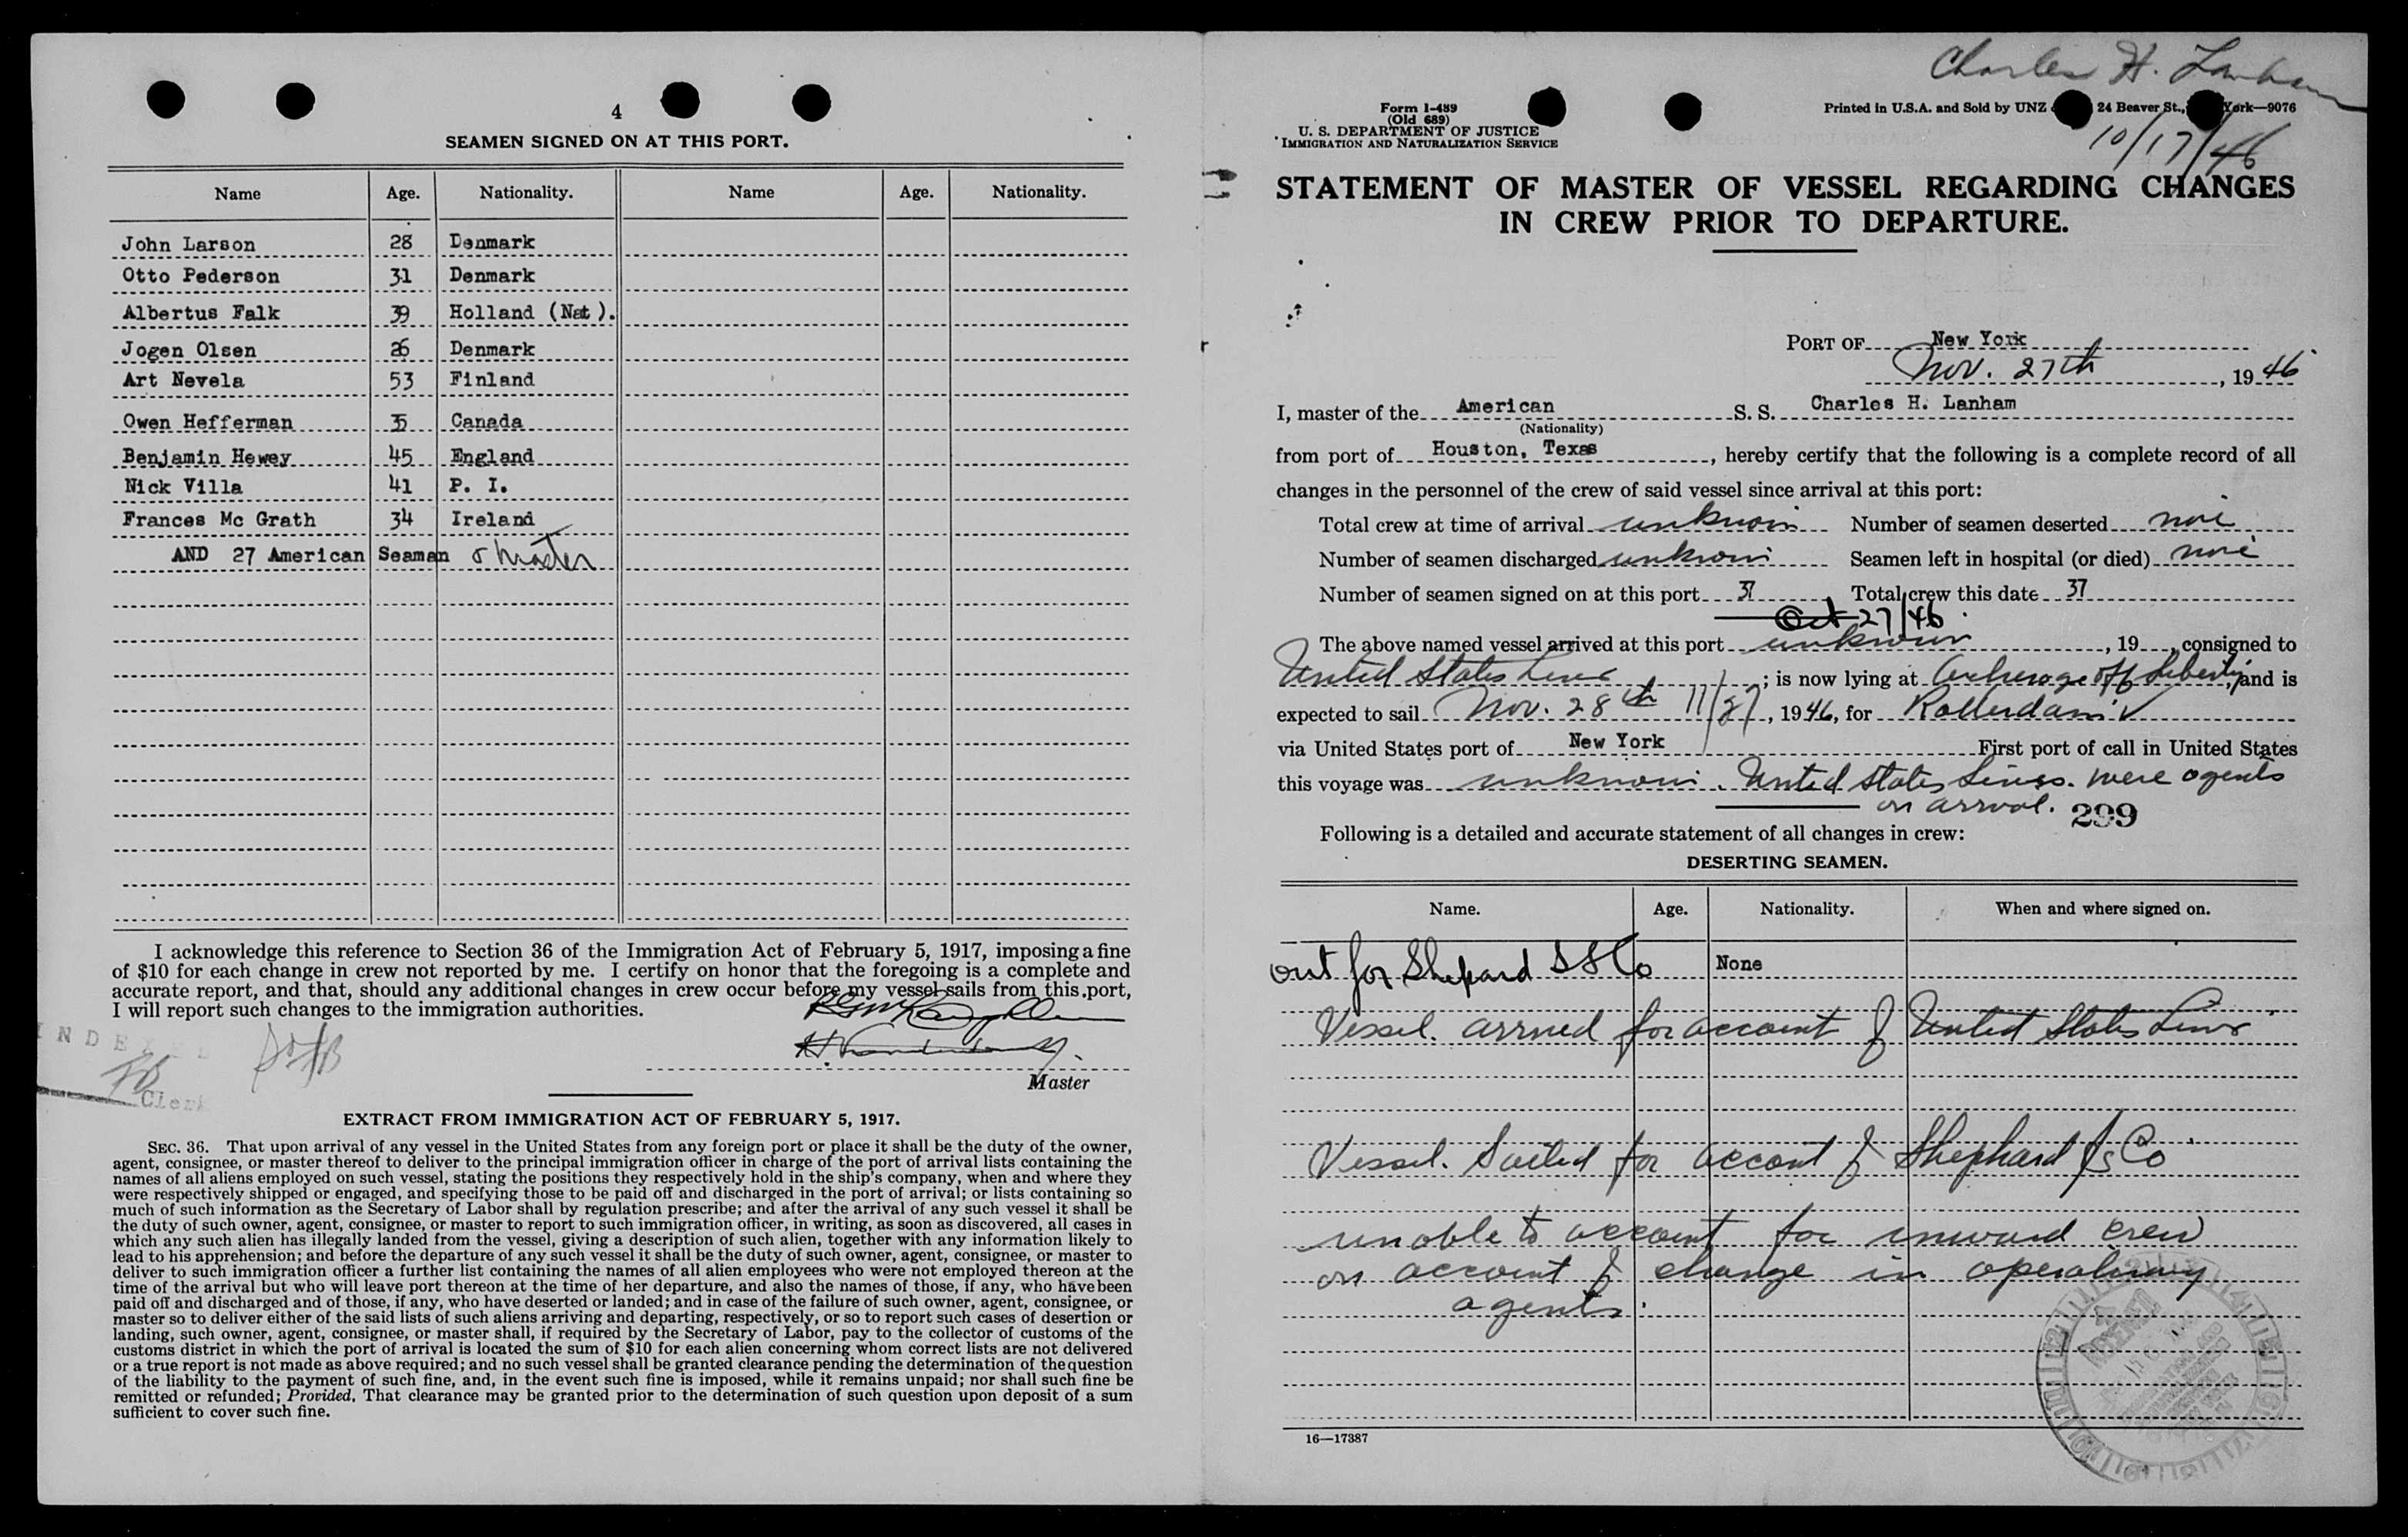 4
SEAMEN SIGNED ON AT THIS PORT.
Name Age. Nationality. Name Age. Nationality.
John Larson 28 Denmark
Otto Pederson 31 Denmark
Albertus Falk 39 Holland (Nat).
Jogen Olsen 26 Denmark
Art Nevela 53 Finland
Owen Hefferman 35 Canada
Benjamin Hewey 45 England
Nick Villa 41 P. I.
Frances Mc Grath 34 Ireland
AND 27 American Seaman & Master
I acknowledge this reference to Section 36 of the Immigration Act of February 5, 1917, imposing a fine
of $10 for each change in crew not reported by me. I certify on honor that the foregoing is a complete and
accurate report, and that, should any additional changes in crew occur before my vessel sails from this port,
I will report such changes to the immigration authorities.
Master
Clerk
EXTRACT FROM IMMIGRATION ACT OF FEBRUARY 5, 1917.
SEC. 36. That upon arrival of any vessel in the United States from any foreign port or place it shall be the duty of the owner,
agent, consignee, or master thereof to deliver to the principal immigration officer in charge of the port of arrival lists containing the
names of all aliens employed on such vessel, stating the positions they respectively hold in the ship's company, when and where they
were respectively shipped or engaged, and specifying those to be paid off and discharged in the port of arrival; or lists containing so
much of such information as the Secretary of Labor shall by regulation prescribe; and after the arrival of any such vessel it shall be
the duty of such owner, agent, consignee, or master to report to such immigration officer, in writing, as soon as discovered, all cases in
which any such alien has illegally landed from the vessel, giving a description of such alien, together with any information likely to
lead to his apprehension; and before the departure of any such vessel it shall be the duty of such owner, agent, consignee, or master to
deliver to such immigration officer a further list containing the names of all alien employees who were not employed thereon at the
time of the arrival but who will leave port thereon at the time of her departure, and also the names of those, if any, who have been
paid off and discharged and of those, if any, who have deserted or landed; and in case of the failure of such owner, agent, consignee, or
master so to deliver either of the said lists of such aliens arriving and departing, respectively, or so to report such cases of desertion or
landing, such owner, agent, consignee, or master shall, if required by the Secretary of Labor, pay to the collector of customs of the
customs district in which the port of arrival is located the sum of $10 for each alien concerning whom correct lists are not delivered
or a true report is not made as above required; and no such vessel shall be granted clearance pending the determination of the question
of the liability to the payment of such fine, and, in the event such fine is imposed, while it remains unpaid; nor shall such fine be
remitted or refunded; Provided, That clearance may be granted prior to the determination of such question upon deposit of a sum
sufficient to cover such fine.
Charles H. Lanham
Form I-489
(Old 689)
U. S. DEPARTMENT OF JUSTICE
IMMIGRATION AND NATURALIZATION SERVICE
Printed in U.S.A. and Sold by UNZ 24 Beaver St., York—9076
10/17/46
STATEMENT OF MASTER OF VESSEL REGARDING CHANGES
IN CREW PRIOR TO DEPARTURE.
PORT OF New York
Nov. 27th, 1946
I, master of the American S. S. Charles H. Lanham
(Nationality)
from port of Houston, Texas, hereby certify that the following is a complete record of all
changes in the personnel of the crew of said vessel since arrival at this port:
Total crew at time of arrival unknown Number of seamen deserted none
Number of seamen discharged unknown Seamen left in hospital (or died) none
Number of seamen signed on at this port 37 Total crew this date 37
Oct 27/46
The above named vessel arrived at this port unknown, 19, consigned to
United States Lines; is now lying at Anchorage off Liberty and is
expected to sail Nov. 28th 11/27, 1946, for Rotterdam
via United States port of New York First port of call in United States
this voyage was unknown. United States Lines. were agents
on arrival. 299
Following is a detailed and accurate statement of all changes in crew:
DESERTING SEAMEN.
Name. Age. Nationality. When and where signed on.
out for Shepard SS Co None
Vessel. arrived for account of United States Lines
Vessel. Sailed for account of Shephard SS Co
unable to account for inward crew
on account of change in operating
agents.
16—17387